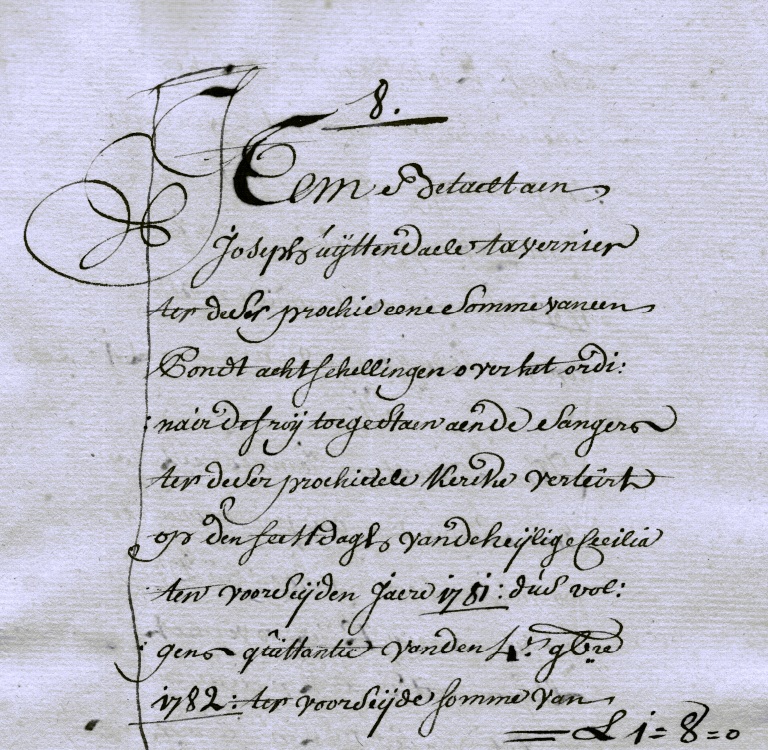 8.
Item Betaelt aen
Joseph uÿttendaele tavernier
ter deser prochie eene somme van een
Pondt acht schellingen over het ordi:
:nair defroÿ toegestaen aen de sangers
ter deser prochiaele kercke verteirt
op den feestdagh van de heÿlige Cecilia
ten voorseÿden Jaere 1781: dus vol:
:gens quittantie van den 4:e 9bre
1782: ter voorseÿde somme van
£ 1=8=0